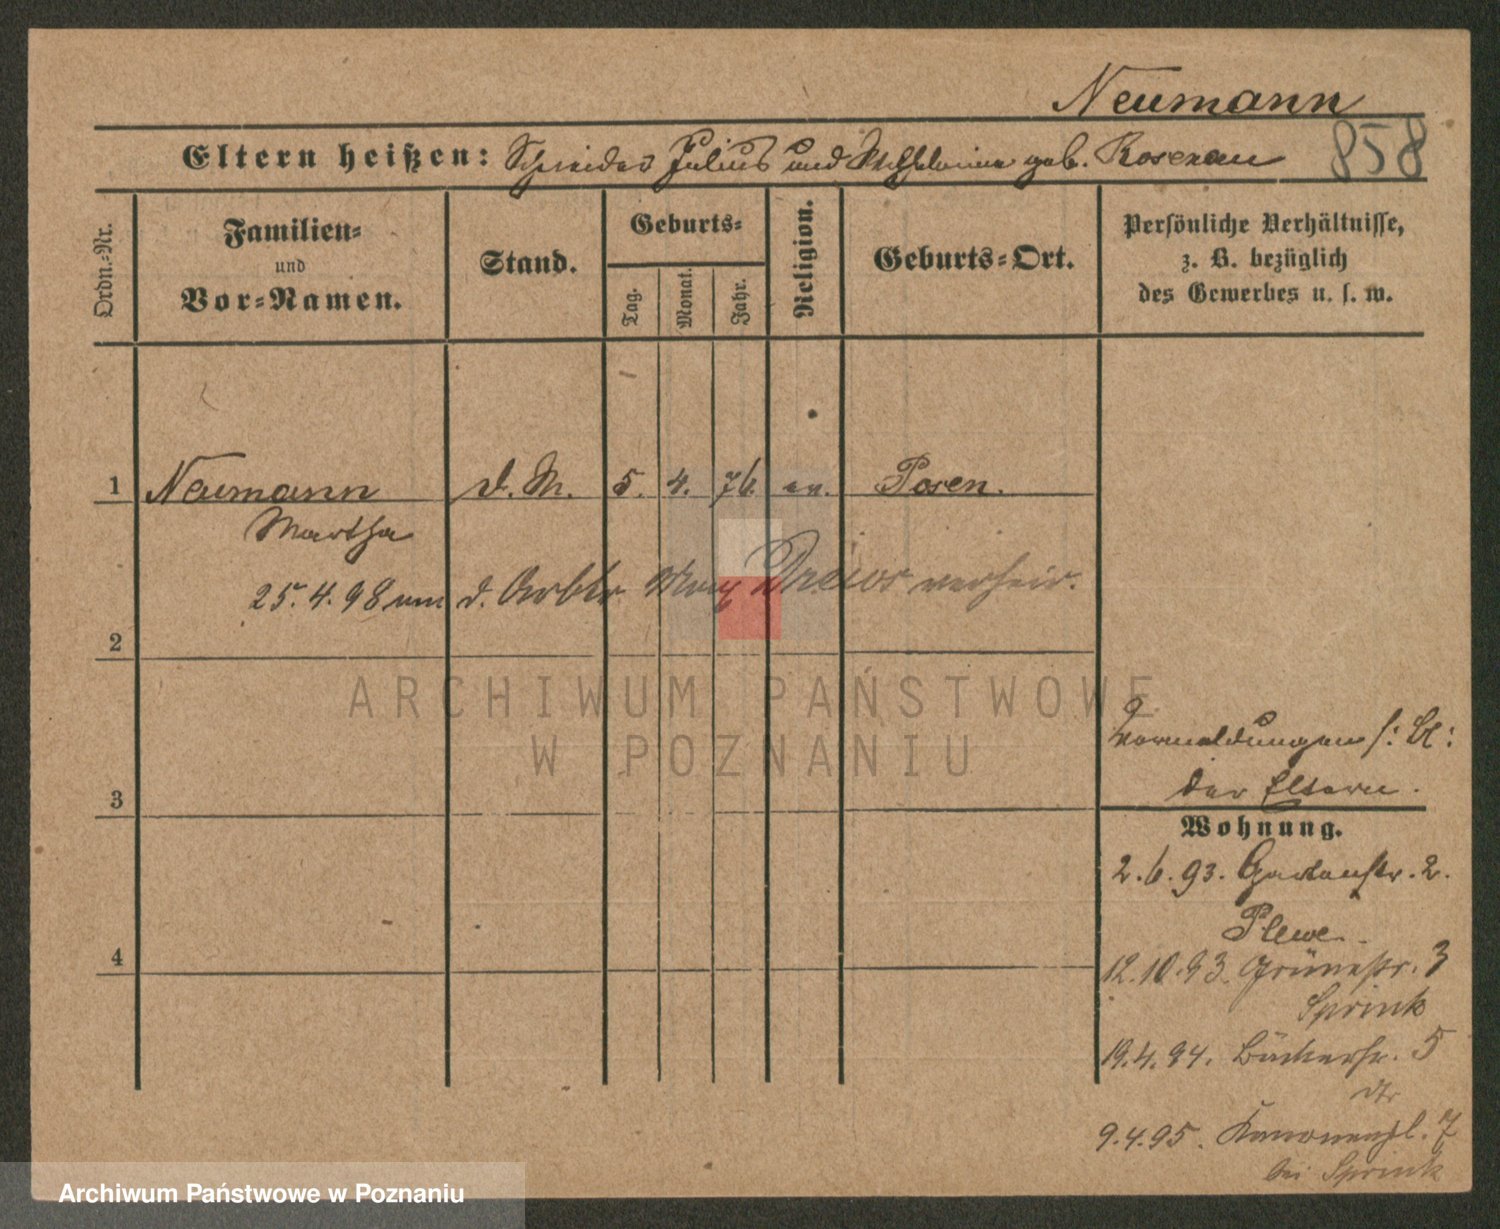 Neumann
Eltern heißen: Schneider Julius und Wilhelmine geb. Rosenau
858
Ordn.-Nr.
Familien-
und
Vor-Namen.
Stand.
Geburts-
Tag.
Monat.
Jahr.
Religion.
Geburts-Ort.
Persönliche Verhältnisse,
z. B. bezüglich
des Gewerbes u. s. w.
1 Neumann d. M. 5. 4. 76. ev. Posen.
Martha
25.4.98 mit d. Arbtr Max verheir.
2
ARCHIWUM PAŃSTWOWE
W POZNANIU
Vormeldungen s: Bl:
der Eltern.
3
Wohnung.
2.6.93. Gartenstr. 2.
Plewe.
4
12.10.93. Grünestr. 3
Sprink
19.4.94. Bäckerstr. 5
dto
9.4.95. Kanonenpl. 7
bei Sprink
Archiwum Państwowe w Poznaniu